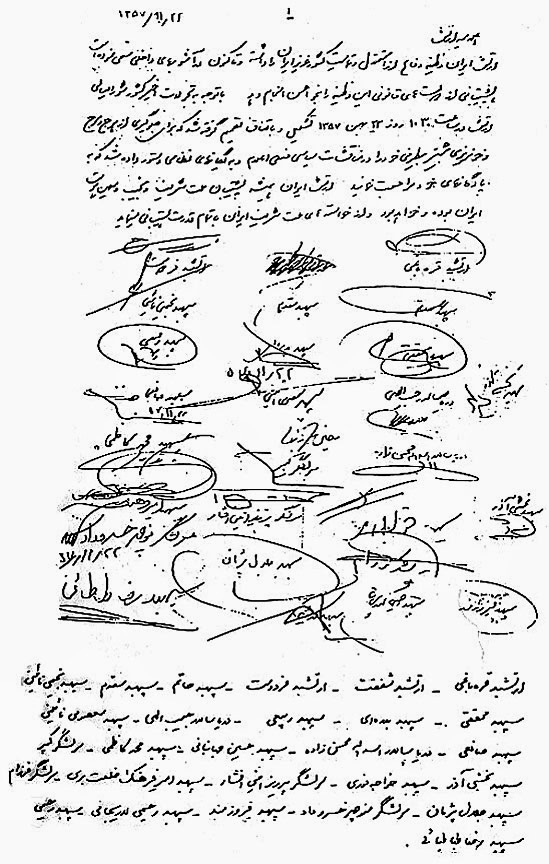 ۱
۱۳۵۷/۱۱/۲۲
ارتش ایران وظیفه دفاع از استقلال و تمامیت کشور عزیز ایران را داشته و تاکنون در آشوبهای داخلی سعی نموده است
با پشتیبانی از دولتهای قانونی این وظیفه را بنحو احسن انجام دهد با توجه به تحولات اخیر کشور شورایعالی
ارتش در ساعت ۱۰۳۰ روز ۲۲ بهمن ۱۳۵۷ تشکیل و باتفاق تصمیم گرفته شد که برای جلوگیری از هرج و مرج
و خونریزی بیشتر بیطرفی خود را در مناقشات سیاسی فعلی اعلام و به یگانهای نظامی دستور داده شد که به
پادگانهای خود مراجعت نمایند ارتش ایران همیشه پشتیبان ملت شریف و نجیب و میهن پرست
ایران بوده و خواهد بود و از خواسته های ملت شریف ایران با تمام قدرت پشتیبانی مینماید
ارتشبد قره باغی ارتشبد فردوست
سپهبد حاتم سپهبد مقدم سپهبد نجیمی نائینی
سپهبد محققی سپهبد بدره ای سپهبد ربیعی
۵۷/۱۱/۲۲
دریاسالار حبیب اللهی سپهبد معصومی نائینی سپهبد صانعی
دریاسالار اسداله محسن زاده سپهبد محمد کاظمی
سپهبد جلال پژمان
سپهبد فیروزمند سپهبد رضا طباطبائی
ارتشبد قره باغی - ارتشبد شفقت - ارتشبد فردوست - سپهبد حاتم - سپهبد مقدم - سپهبد نجیمی نائینی
سپهبد محققی - سپهبد بدره ای - سپهبد ربیعی - دریاسالار حبیب الهی - سپهبد معصومی نائینی
سپهبد صانعی - دریاسالار اسداله محسن زاده - سپهبد حسین جهانبانی - سپهبد محمد کاظمی - سرلشگر کبیر
سپهبد بخشی آذر - سپهبد خواجه نوری - سرلشگر پرویز امینی افشار - سپهبد امیر فرهنگ خلعت بری - سرلشگر فرزام
سپهبد جلال پژمان - سرلشگر منوچهر خسروداد - سپهبد فیروزمند - سپهبد رحیمی لاریجانی - سپهبد رحیمی
سپهبد رضا طباطبائی .